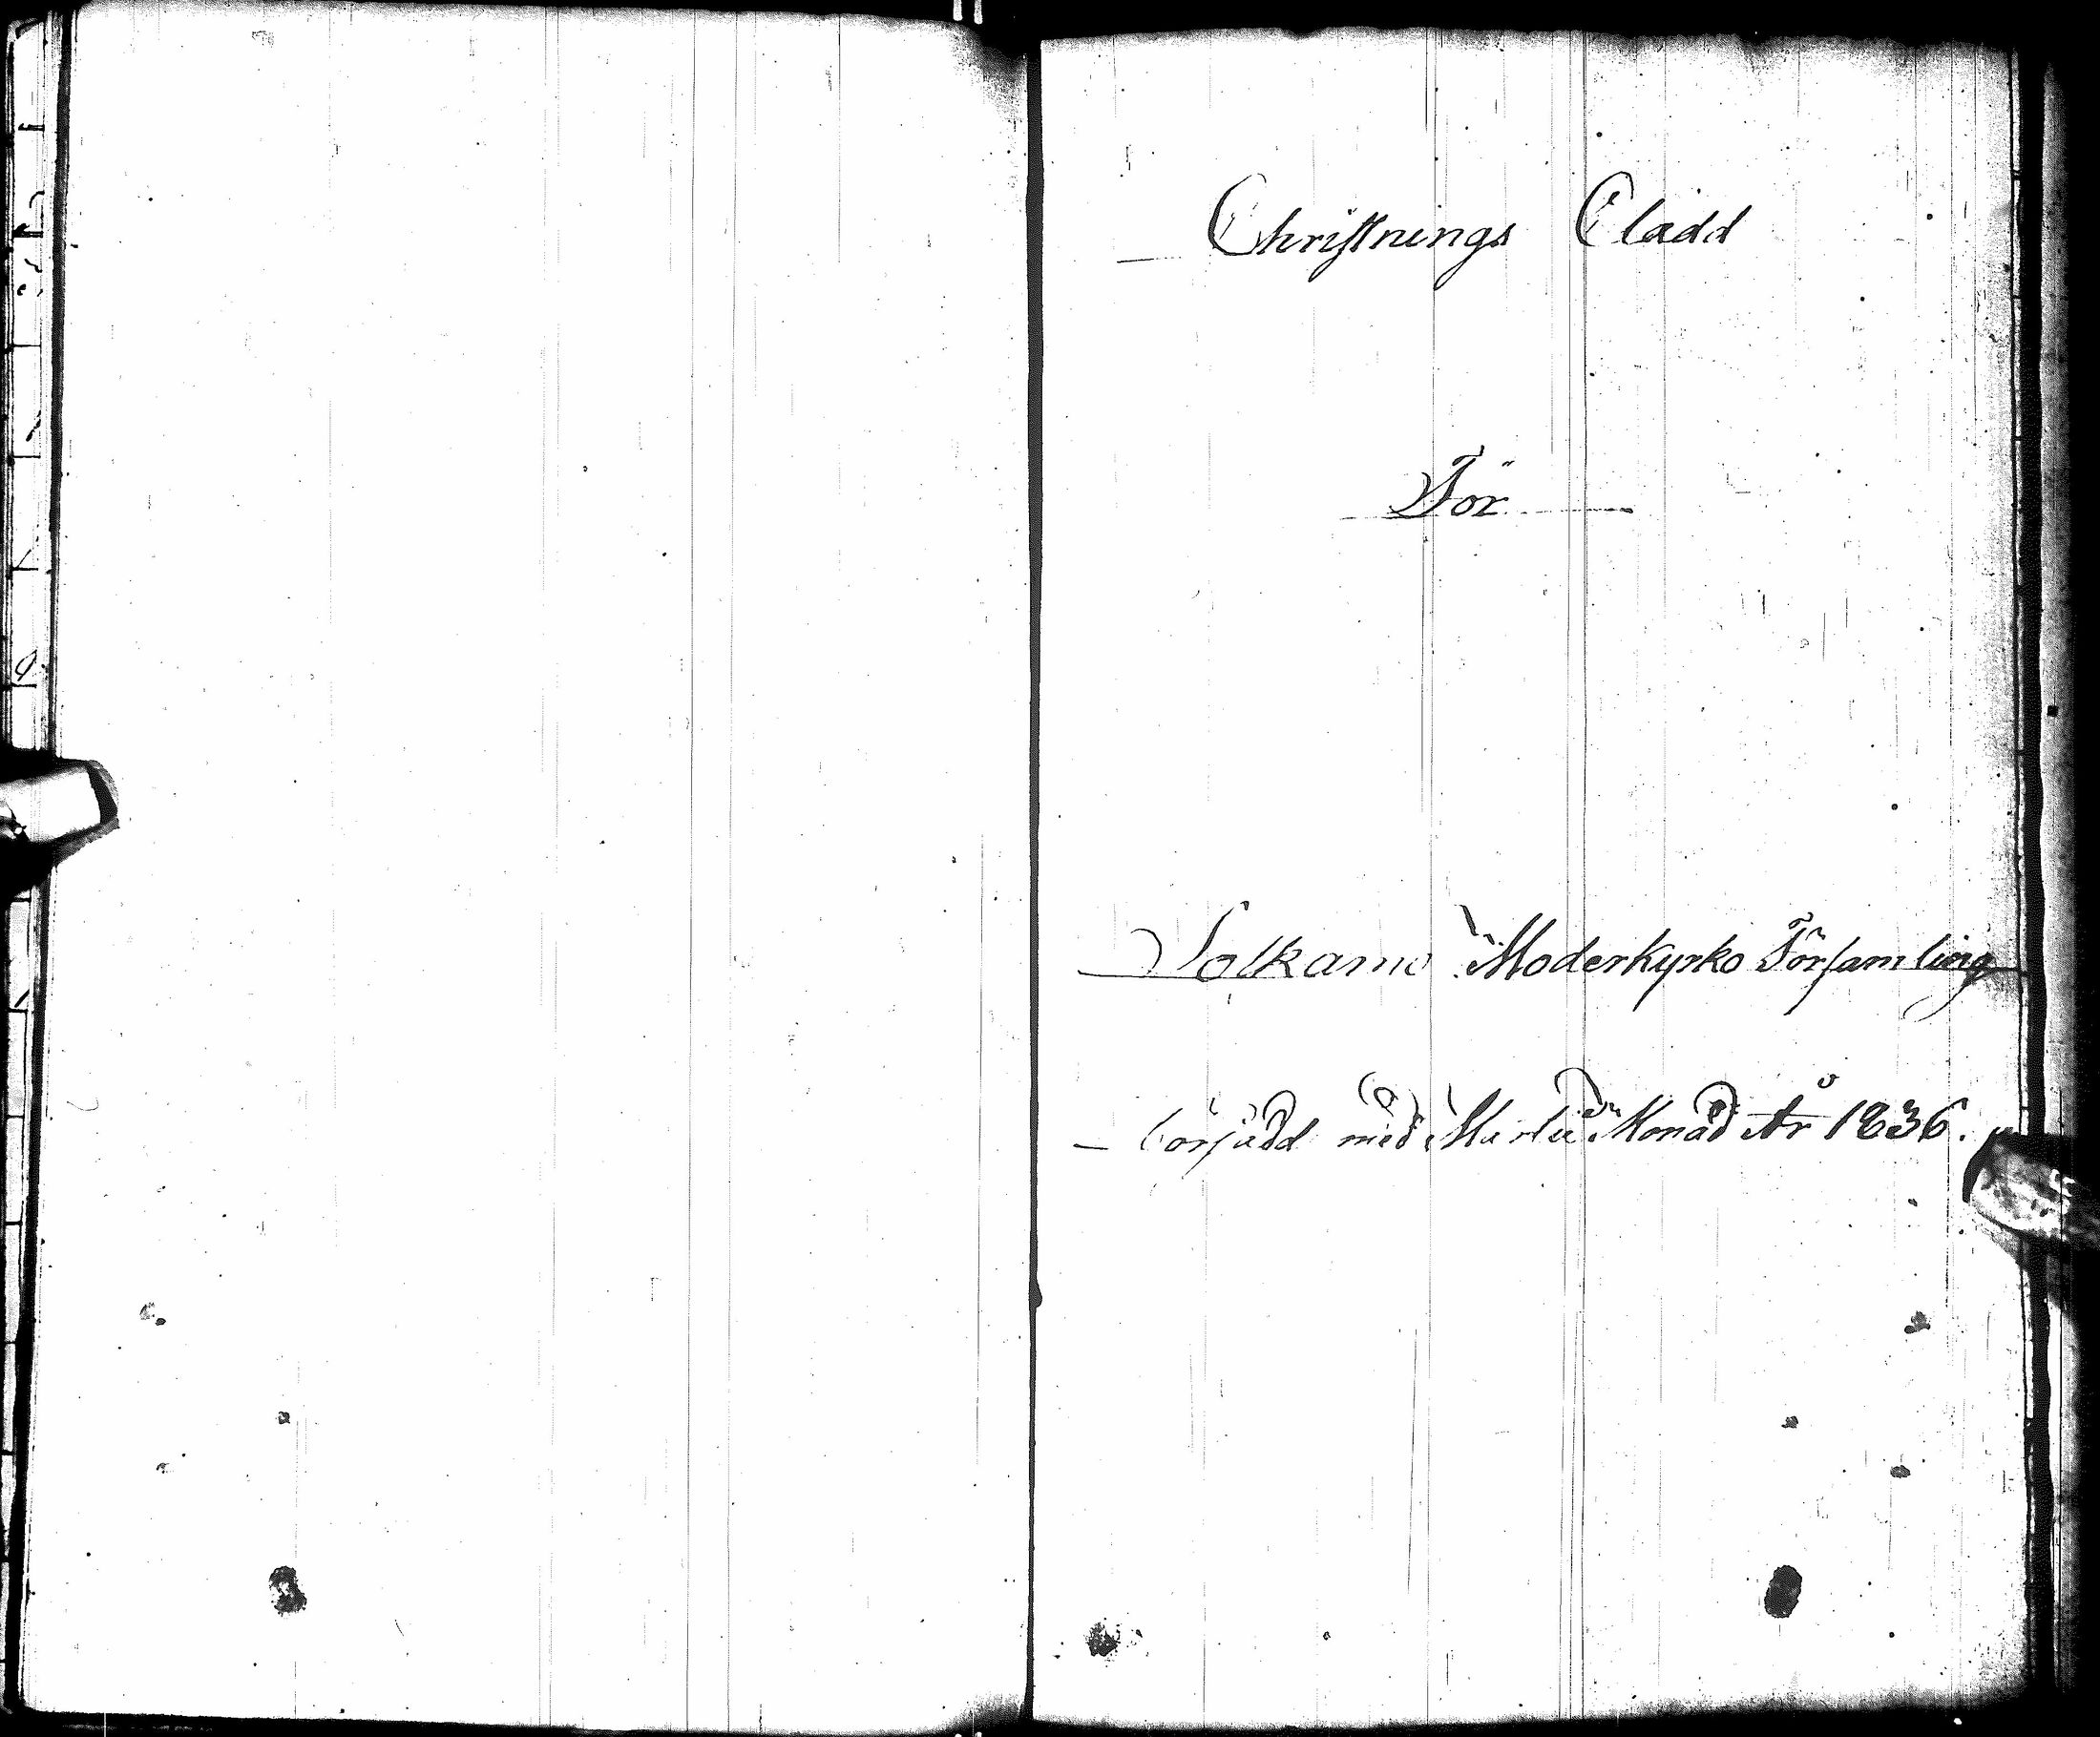 Christnings Cladd
För
Sotkamo Moderkyrko Församling
börjadd med Martii Monad År 1836.